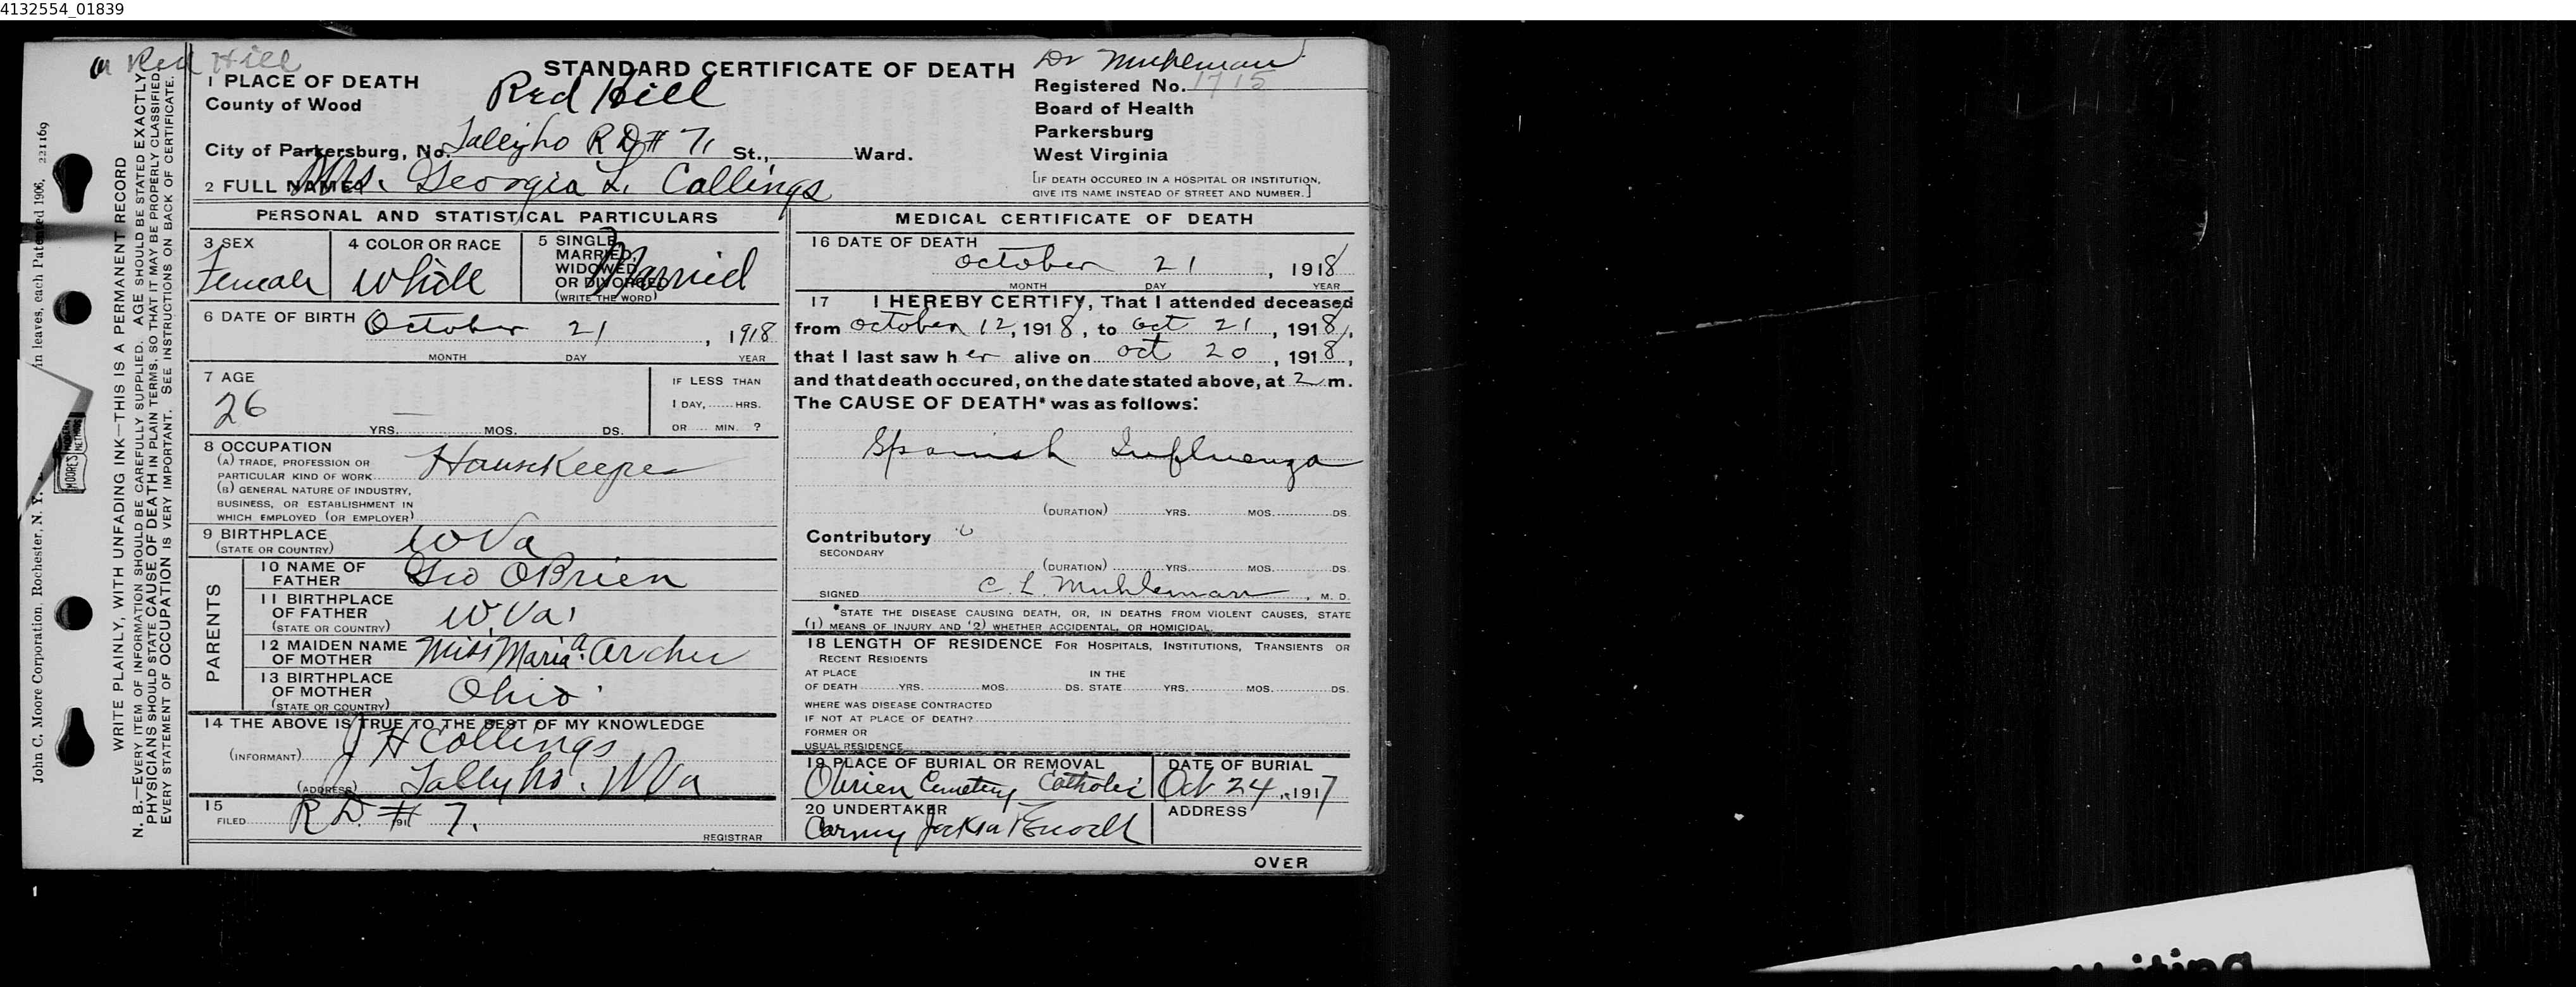 4132554_01839
on Red Hill
STANDARD CERTIFICATE OF DEATH
Dr Muhleman
1 PLACE OF DEATH
Red Hill
Registered No. 1715
County of Wood
Board of Health
Parkersburg
City of Parkersburg, No. Tallyho R D # 7, St., Ward.
West Virginia
2 FULL NAME Mrs. Georgia L. Collings
[IF DEATH OCCURED IN A HOSPITAL OR INSTITUTION,
GIVE ITS NAME INSTEAD OF STREET AND NUMBER.]
PERSONAL AND STATISTICAL PARTICULARS
3 SEX
Female
4 COLOR OR RACE
White
5 SINGLE,
MARRIED,
WIDOWED,
OR DIVORCED
(WRITE THE WORD)
Married
6 DATE OF BIRTH October 21, 1918
MONTH DAY YEAR
7 AGE
26
YRS. MOS. DS.
IF LESS THAN
1 DAY, HRS.
OR MIN. ?
8 OCCUPATION
(A) TRADE, PROFESSION OR
PARTICULAR KIND OF WORK Housekeeper
(B) GENERAL NATURE OF INDUSTRY,
BUSINESS, OR ESTABLISHMENT IN
WHICH EMPLOYED (OR EMPLOYER)
9 BIRTHPLACE
(STATE OR COUNTRY) W Va
PARENTS
10 NAME OF
FATHER Geo OBrien
11 BIRTHPLACE
OF FATHER
(STATE OR COUNTRY) W. Va.
12 MAIDEN NAME
OF MOTHER Miss Maria a. Archer
13 BIRTHPLACE
OF MOTHER
(STATE OR COUNTRY) Ohio
14 THE ABOVE IS TRUE TO THE BEST OF MY KNOWLEDGE
(INFORMANT) J H Collings
(ADDRESS) Tallyho. W Va
15
FILED R D. # 7. 191
REGISTRAR
MEDICAL CERTIFICATE OF DEATH
16 DATE OF DEATH
October 21, 1918
MONTH DAY YEAR
17 I HEREBY CERTIFY, That I attended deceased
from October 12, 1918, to Oct 21, 1918,
that I last saw h er alive on Oct 20, 1918,
and that death occured, on the date stated above, at 2 m.
The CAUSE OF DEATH* was as follows:
Spanish Influenza
(DURATION) YRS. MOS. DS.
Contributory
SECONDARY
(DURATION) YRS. MOS. DS.
SIGNED C. L. Muhleman, M. D.
*STATE THE DISEASE CAUSING DEATH, OR, IN DEATHS FROM VIOLENT CAUSES, STATE
(1) MEANS OF INJURY AND (2) WHETHER ACCIDENTAL, OR HOMICIDAL.
18 LENGTH OF RESIDENCE FOR HOSPITALS, INSTITUTIONS, TRANSIENTS OR
RECENT RESIDENTS
AT PLACE IN THE
OF DEATH YRS. MOS. DS. STATE YRS. MOS. DS.
WHERE WAS DISEASE CONTRACTED
IF NOT AT PLACE OF DEATH?
FORMER OR
USUAL RESIDENCE
19 PLACE OF BURIAL OR REMOVAL
Obrien Cemetery Catholic
DATE OF BURIAL
Oct 24, 1917
20 UNDERTAKER
ADDRESS
OVER
WRITE PLAINLY, WITH UNFADING INK—THIS IS A PERMANENT RECORD
N. B.—EVERY ITEM OF INFORMATION SHOULD BE CAREFULLY SUPPLIED. AGE SHOULD BE STATED EXACTLY
PHYSICIANS SHOULD STATE CAUSE OF DEATH IN PLAIN TERMS, SO THAT IT MAY BE PROPERLY CLASSIFIED.
EVERY STATEMENT OF OCCUPATION IS VERY IMPORTANT. SEE INSTRUCTIONS ON BACK OF CERTIFICATE.
John C. Moore Corporation, Rochester, N. Y.
in leaves, each Patented 1906. 221169